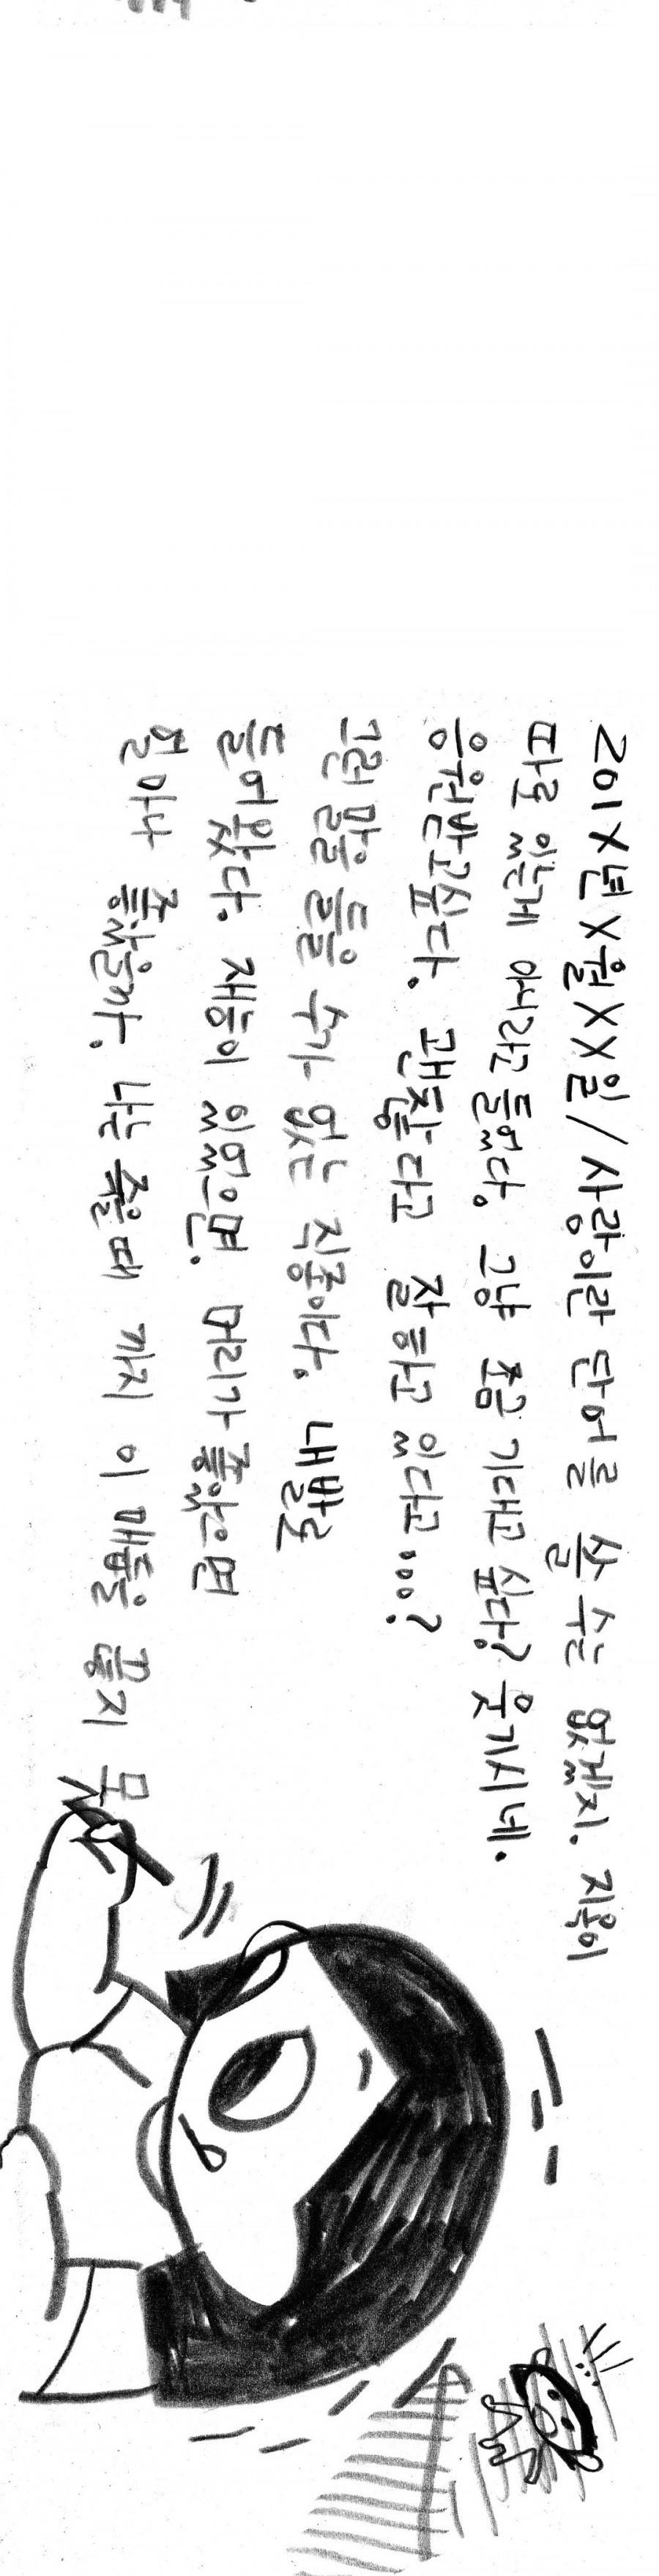 201X년 X월 XX일 / 사랑이란 단어를 쓸 수는 없겠지. 지옥이
따로 있는게 아니라고 들었다. 그냥 조금 기대고 싶다? 웃기시네.
응원받고싶다. 괜찮다고 잘하고 있다고...?
그런 말을 들을 수가 없는 직종이다. 내발로
들어왔다. 재능이 있었으면. 머리가 좋았으면
얼마나 좋았을까. 나는 죽을때 까지 이 매듭을 끊지 못